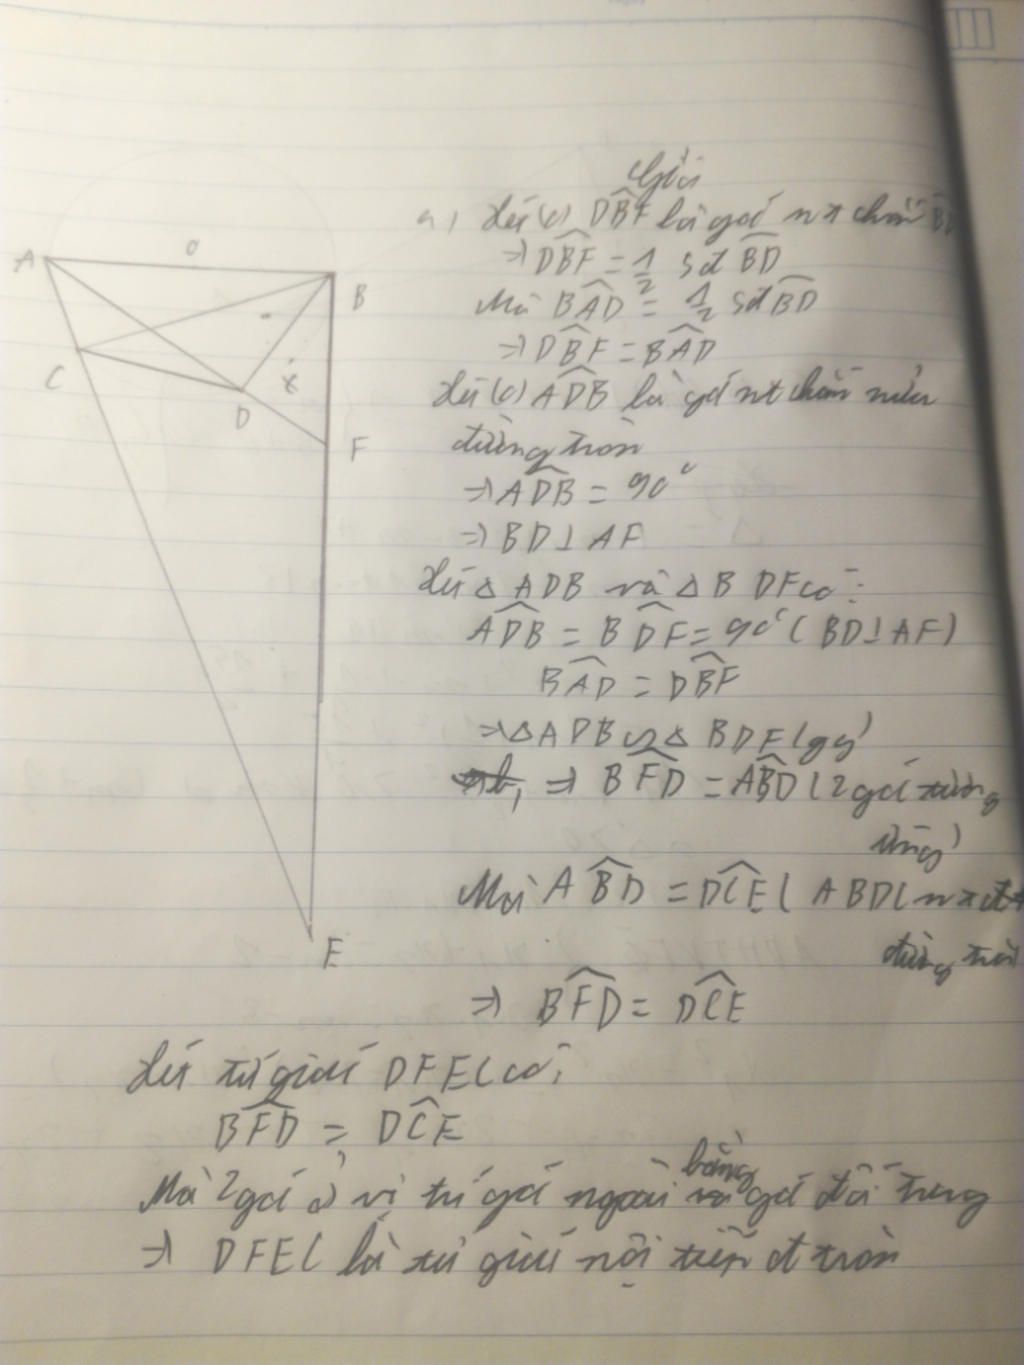 Giải
a, Xét (o) DBF là góc nt chắn BD
⇒ DBF = 1/2 sđ BD
Mà BAD = 1/2 sđ BD
⇒ DBF = BAD
Xét (o) ADB là góc nt chắn nửa
đường tròn
⇒ ADB = 90°
⇒ BD ⊥ AF
Xét Δ ADB và Δ BDF có:
ADB = BDF = 90° (BD ⊥ AF)
BAD = DBF
⇒ Δ ADB ∽ Δ BDF (gg)
⇒ BFD = ABD (2 góc tương
ứng)
Mà ABD = DCE (ABDC nt
đường tròn
⇒ BFD = DCE
Xét tứ giác DFEC có:
BFD = DCE
Mà 2 góc ở vị trí góc ngoài bằng góc đối trong
⇒ DFEC là tứ giác nội tiếp đ tròn
A
O
B
C
D
x
F
E